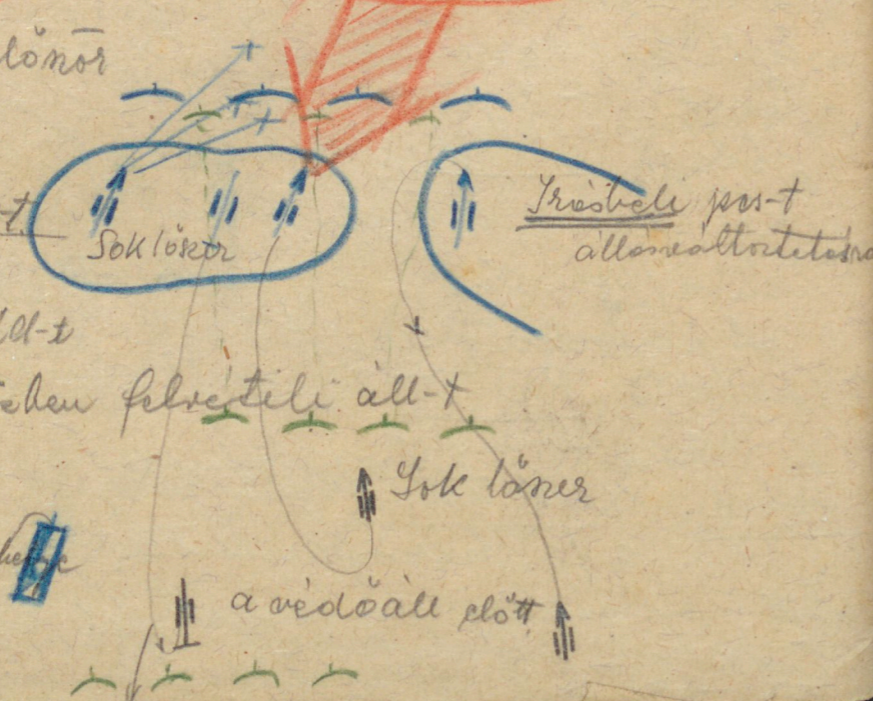 lőszer
-t
Sok lőszer
Írásbeli pcs-t
állásváltoztatásra
áll-t
felvételi áll-t
Sok lőszer
a védőáll előtt